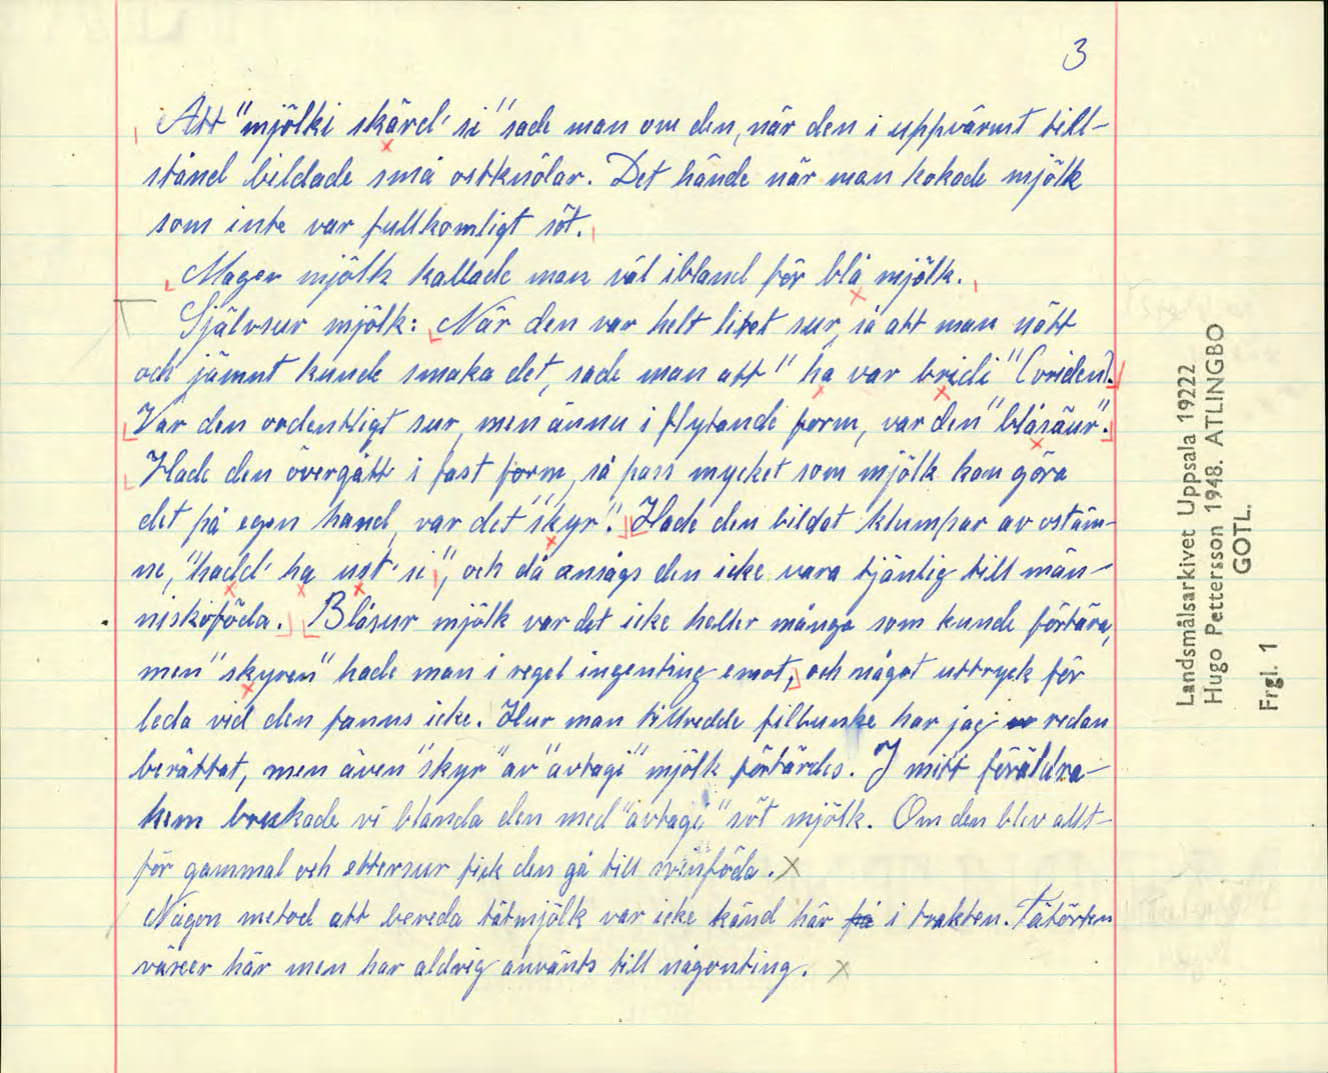 3
Att "mjölki skärd' si" sade man om den, när den i uppvärmt till-
stånd bildade små ostknölar. Det hände när man kokade mjölk
som inte var fullkomligt söt.
Mager mjölk kallade man väl ibland för blå mjölk.
Självsur mjölk: När den var helt litet sur, så att man nätt
och jämnt kunde smaka det, sade man att "ha var bridi" (vriden).
Var den ordentligt sur, men ännu i flytande form, var den "blåsäur".
Hade den övergått i fast form, så pass mycket som mjölk kan göra
det på egen hand, var det "skyr". Hade den bildat klumpar av ostäm-
ne, "hadd' ha ust' si", och då ansågs den icke vara tjänlig till män-
niskoföda. Blåsur mjölk var det icke heller många som kunde förtära,
men "skyren" hade man i regel ingenting emot, och något uttryck för
leda vid den fanns icke. Hur man tillredde filbunke har jag redan
berättat, men även "skyr" av "avtagi" mjölk förtärdes. I mitt föräldra-
hem brukade vi blanda den med "avtagi" söt mjölk. Om den blev allt-
för gammal och ettersur fick den gå till svinföda.
Någon metod att bereda tätmjölk var icke känd här på i trakten. Tätörten
växer här men har aldrig använts till någonting.
Landsmålsarkivet Uppsala 19222
Hugo Pettersson 1948. ATLINGBO
GOTL.
Frgl. 1